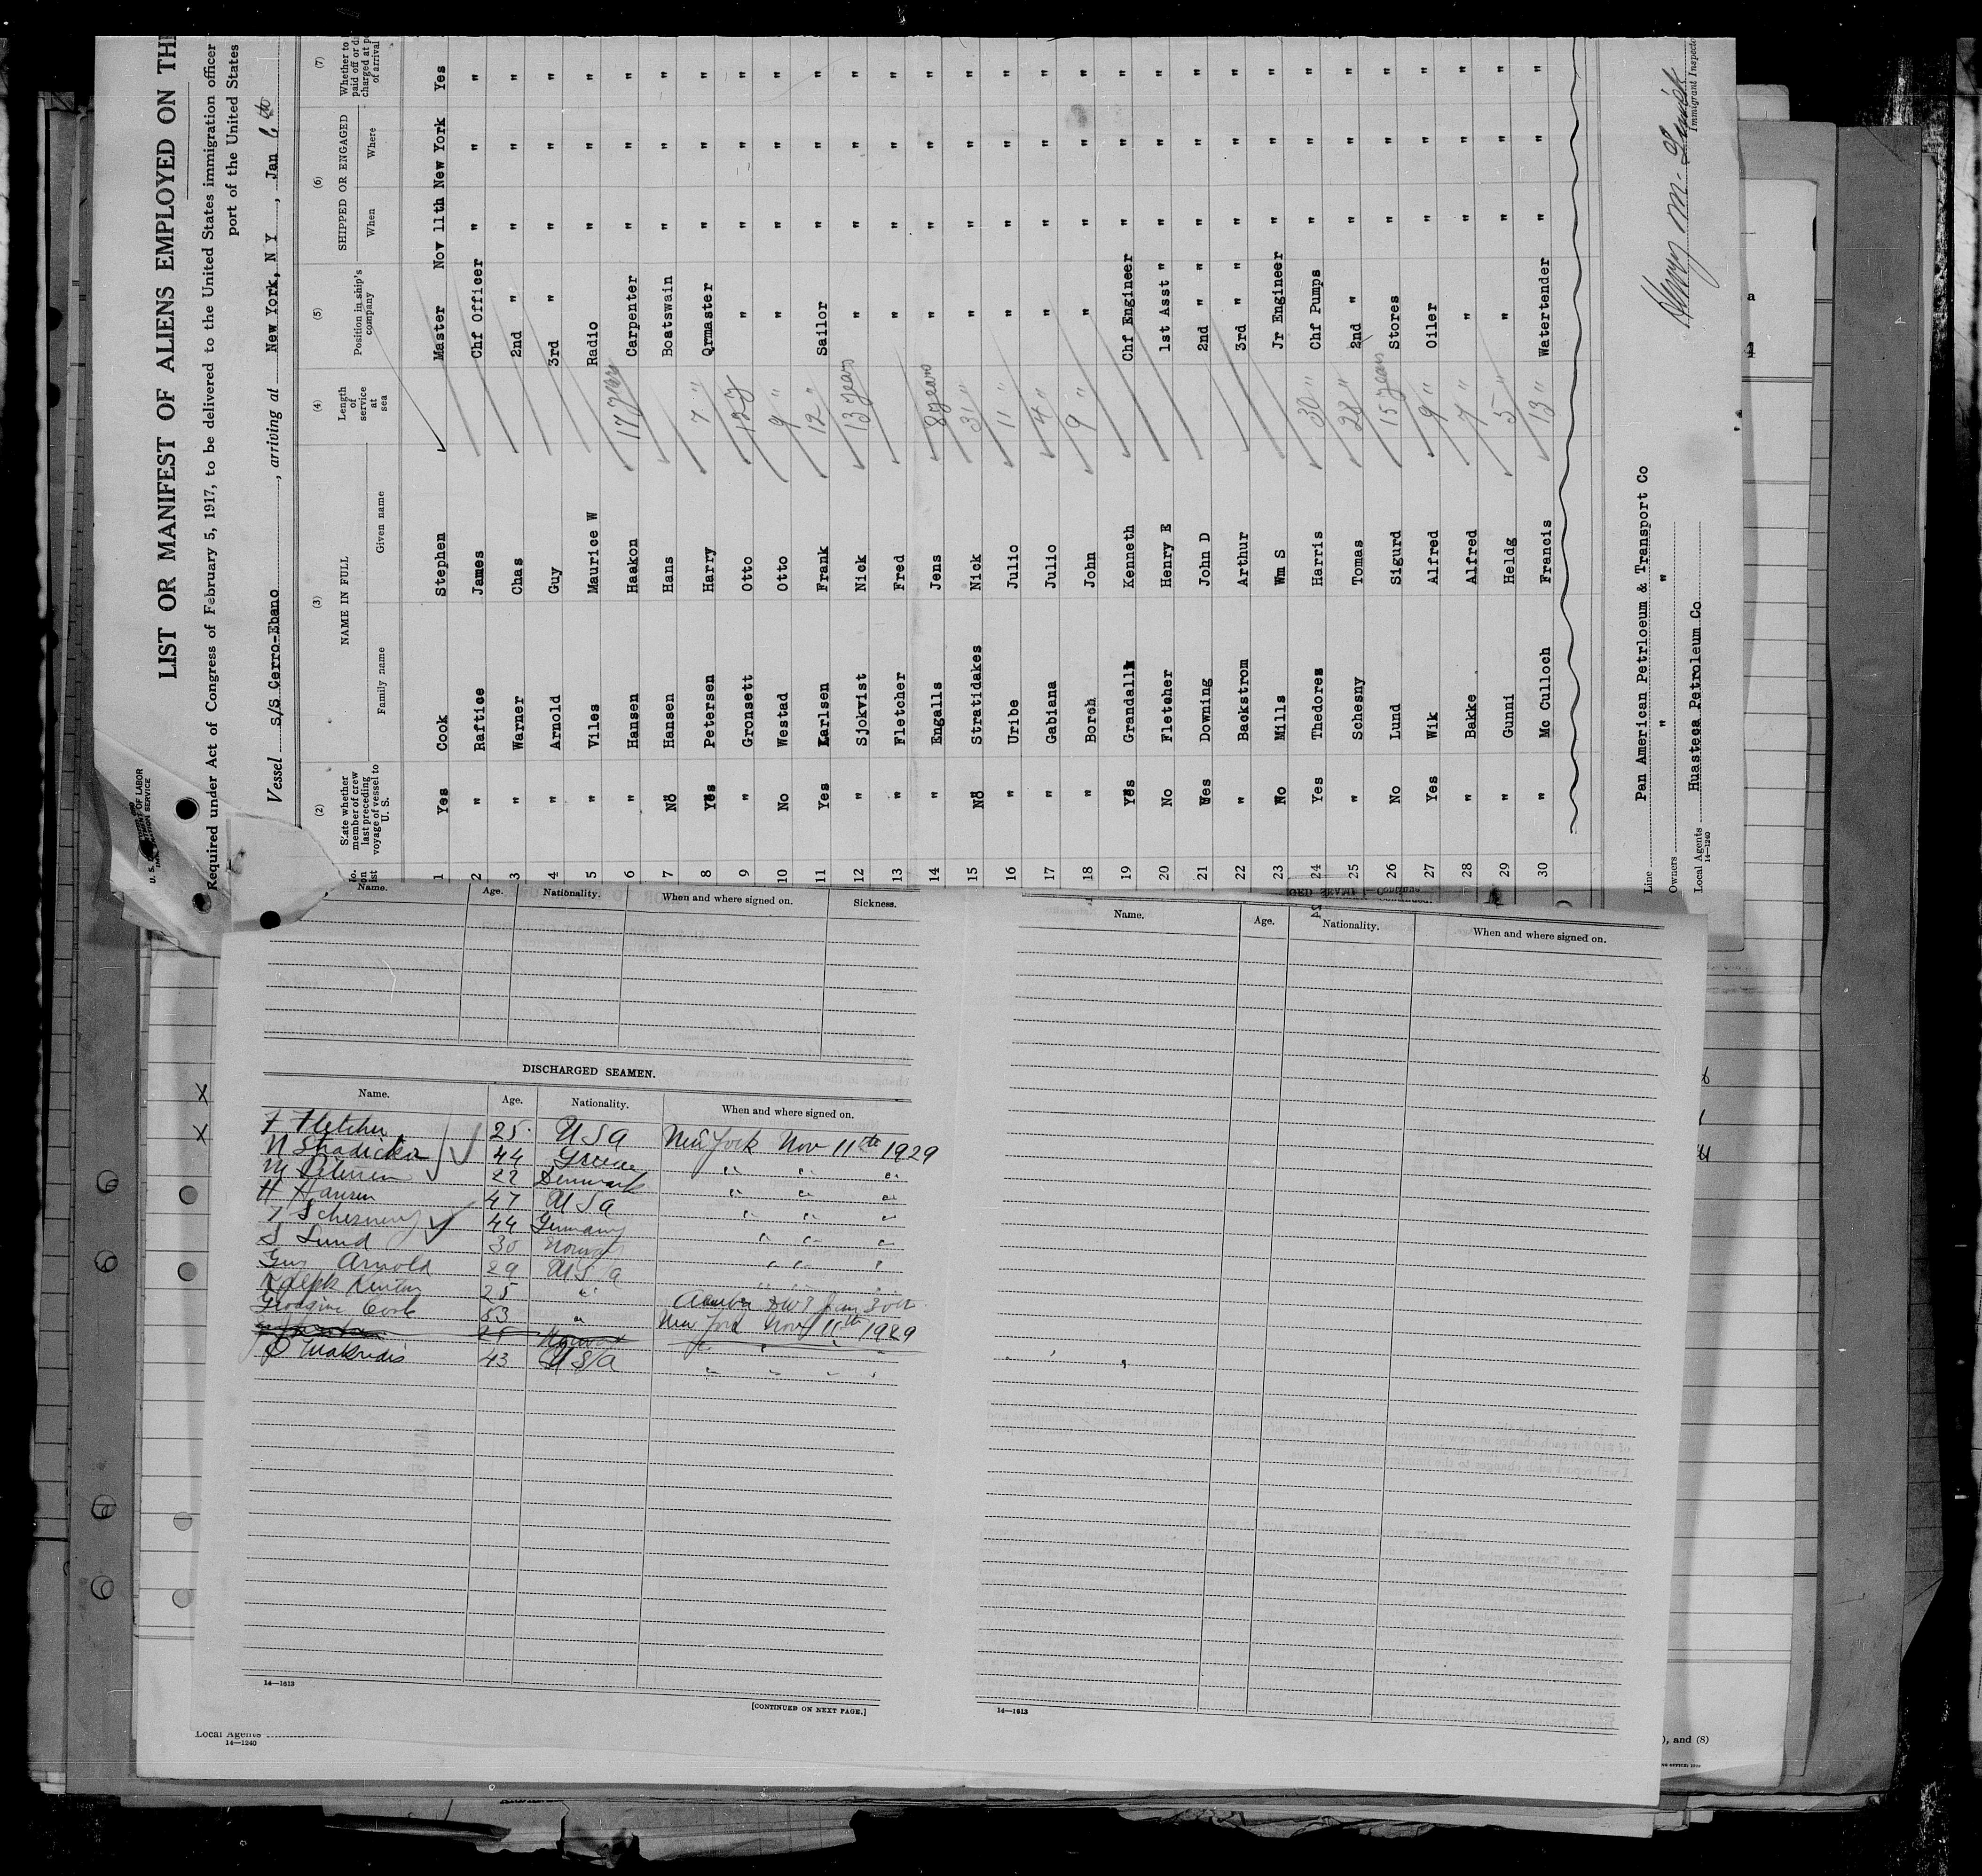 LIST OR MANIFEST OF ALIENS EMPLOYED ON TH
Required under Act of Congress of February 5, 1917, to be delivered to the United States immigration officer
port of the United States
Vessel S/S Cerro-Ebano, arriving at New York, N Y, Jan 6th
U. S. OF LABOR
(2) (3) (4) (5) (6) (7)
State whether member of crew last preceding voyage of vessel to U. S.
NAME IN FULL
Family name Given name
Length of service at sea
Position in ship's company
SHIPPED OR ENGAGED
When Where
Whether to paid off or di charged at p of arrival
1 Yes Cook Stephen Master Nov 11th New York Yes
2 " Raftice James Chf Officer " " "
3 " Warner Chas 2nd " " " "
4 " Arnold Guy 3rd " " " "
5 " Viles Maurice W Radio " " "
6 " Hansen Haakon 17 yrs Carpenter " " "
7 No Hansen Hans Boatswain " " "
8 Yes Petersen Harry 7 " Qrmaster " " "
9 " Gronsett Otto 12 y " " " "
10 No Westad Otto 9 " " " " "
11 Yes Karlsen Frank 12 " Sailor " " "
12 " Sjokvist Nick 13 years " " " "
13 " Fletcher Fred " " " "
14 " Engalls Jens 8 years " " " "
15 No Stratidakes Nick 31 " " " " "
16 " Uribe Julio 11 " " " " "
17 " Gabiana Julio 4 " " " " "
18 " Borch John 9 " " " " "
19 Yes Grandall Kenneth Chf Engineer " " "
20 No Fletcher Henry E 1st Asst " " " "
21 Yes Downing John D 2nd " " " " "
22 " Backstrom Arthur 3rd " " " " "
23 No Mills Wm S Jr Engineer " " "
24 Yes Thedores Harris 30 " Chf Pumps " " "
25 " Schesny Tomas 28 " 2nd " " " "
26 No Lund Sigurd 15 years Stores " " "
27 Yes Wik Alfred 9 " Oiler " " "
28 " Bakke Alfred 7 " " " " "
29 " Gunni Heldg 5 " " " " "
30 " Mc Culloch Francis 13 " Watertender " " "
Line Pan American Petrloeum & Transport Co
Owners " "
Local Agents Huasteca Petroleum Co
14—1240
Henry M.
Immigrant Inspecto
Name. Age. Nationality. When and where signed on. Sickness.
DISCHARGED SEAMEN.
Name. Age. Nationality. When and where signed on.
F Fletcher 25 USA New York Nov 11th 1929
N 44 Greece " " "
M Petersen 22 Denmark " " "
H Hansen 47 USA " " "
T Schesney 44 Germany " " "
S Lund 30 Norway " " "
Guy Arnold 29 USA
Ralph 25 "
Cook 53 " New York Nov 11th 1929
43 USA " " " "
14—1613
[CONTINUED ON NEXT PAGE.]
Name. Age. Nationality. When and where signed on.
14—1613
Local Agents
14—1240
), and (8)